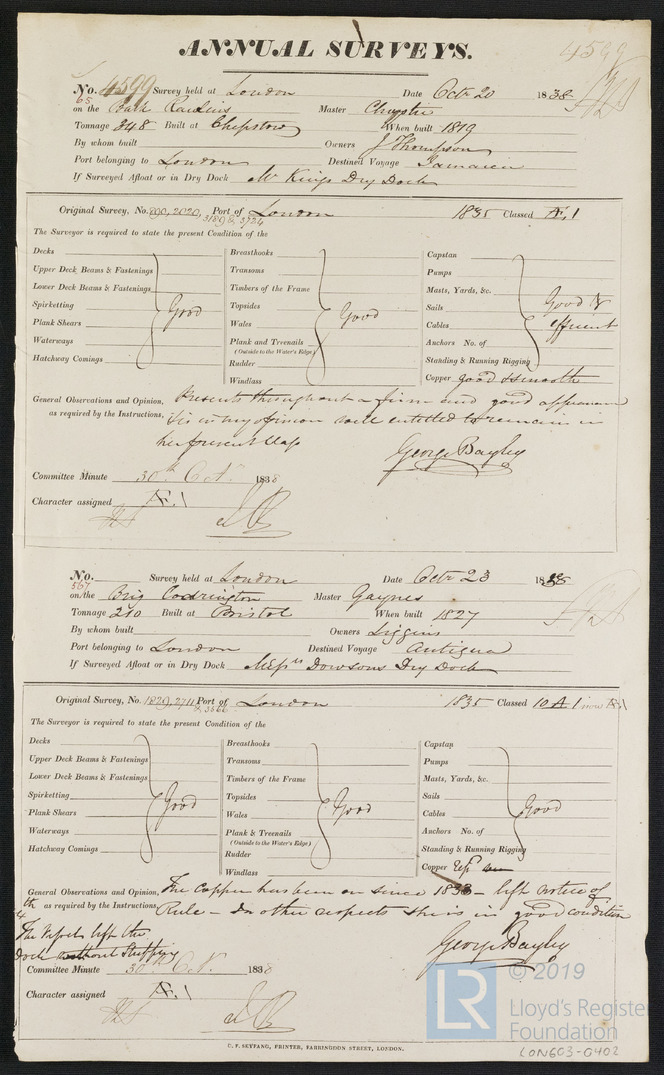 ANNUAL SURVEYS.
4599
No. 4599 Survey held at London Date Octr 20 1838
65
on the Bark Rawlins Master Chrystie
Tonnage 348 Built at Chepstow When built 1819
By whom built Owners J Thompson
Port belonging to London Destined Voyage Jamaica
If Surveyed Afloat or in Dry Dock Mr Kings Dry Dock
Original Survey, No. 890, 2020, 3189 & 3724 Port of London 1835 Classed Æ.1
The Surveyor is required to state the present Condition of the
Decks
Upper Deck Beams & Fastenings
Lower Deck Beams & Fastenings
Spirketting
Plank Shears
Waterways
Hatchway Comings
Good
Breasthooks
Transoms
Timbers of the Frame
Topsides
Wales
Plank and Treenails
(Outside to the Water's Edge)
Rudder
Windlass
Good
Capstan
Pumps
Masts, Yards, &c.
Sails
Cables
Anchors No. of
Standing & Running Rigging
Good &
efficient
Copper good & smooth
General Observations and Opinion, Presents throughout a firm and good appearance
as required by the Instructions, & is in my opinion well entitled to remain in
her present Class
George Bayley
Committee Minute 30th Oct. 1838
Character assigned Æ.1
No. Survey held at London Date Octr 23 1838
567
on the Brig Codrington Master Gaynes
Tonnage 210 Built at Bristol When built 1827
By whom built Owners Liggins
Port belonging to London Destined Voyage Antigua
If Surveyed Afloat or in Dry Dock Messrs Dowsons Dry Dock
Original Survey, No. 1829, 2711 & 3566 Port of London 1835 Classed 10 A.1 now Æ.1
The Surveyor is required to state the present Condition of the
Decks
Upper Deck Beams & Fastenings
Lower Deck Beams & Fastenings
Spirketting
Plank Shears
Waterways
Hatchway Comings
Good
Breasthooks
Transoms
Timbers of the Frame
Topsides
Wales
Plank & Treenails
(Outside to the Water's Edge)
Rudder
Windlass
Good
Capstan
Pumps
Masts, Yards, &c.
Sails
Cables
Anchors No. of
Standing & Running Rigging
Good
Copper
General Observations and Opinion, The Copper has been on since 1833 - left notice of
as required by the Instructions, Rule - In other respects She is in good condition
The Vessel left the
Dock without Stripping
George Bayley
Committee Minute 30th Oct. 1838
Character assigned Æ.1
C. F. SEYFANG, PRINTER, FARRINGDON STREET, LONDON.
LR © 2019
Lloyd's Register
Foundation
LON603-0402